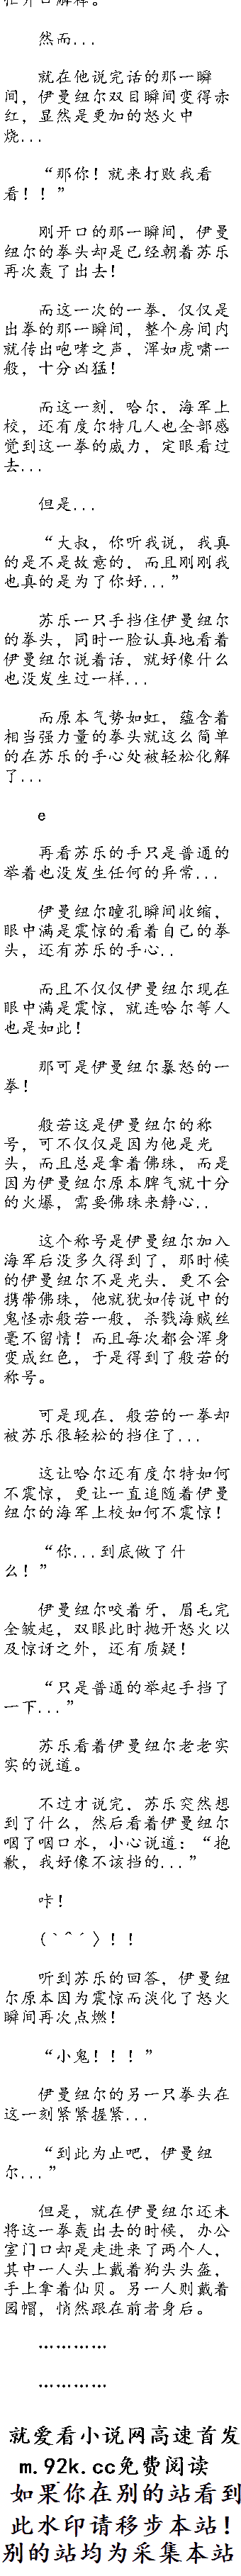 然而...
就在他说完话的那一瞬
间，伊曼纽尔双目瞬间变得赤
红，显然是更加的怒火中
烧...
“那你！就来打败我看
看！！”
刚开口的那一瞬间，伊曼
纽尔的拳头却是已经朝着苏乐
再次轰了出去！
而这一次的一拳，仅仅是
出拳的那一瞬间，整个房间内
就传出咆哮之声，浑如虎啸一
般，十分凶猛！
而这一刻，哈尔，海军上
校，还有度尔特几人也全部感
觉到这一拳的威力，定眼看过
去...
但是...
“大叔，你听我说，我真
的是不是故意的，而且刚刚我
也真的是为了你好...”
苏乐一只手挡住伊曼纽尔
的拳头，同时一脸认真地看着
伊曼纽尔说着话，就好像什么
也没发生过一样...
而原本气势如虹，蕴含着
相当强力量的拳头就这么简单
的在苏乐的手心处被轻松化解
了...
e
再看苏乐的手只是普通的
举着也没发生任何的异常...
伊曼纽尔瞳孔瞬间收缩，
眼中满是震惊的看着自己的拳
头，还有苏乐的手心..
而且不仅仅伊曼纽尔现在
眼中满是震惊，就连哈尔等人
也是如此！
那可是伊曼纽尔暴怒的一
拳！
般若这是伊曼纽尔的称
号，可不仅仅是因为他是光
头，而且总是拿着佛珠，而是
因为伊曼纽尔原本脾气就十分
的火爆，需要佛珠来静心..
这个称号是伊曼纽尔加入
海军后没多久得到了，那时候
的伊曼纽尔不是光头，更不会
携带佛珠，他就犹如传说中的
鬼怪赤般若一般，杀戮海贼丝
毫不留情！而且每次都会浑身
变成红色，于是得到了般若的
称号。
可是现在，般若的一拳却
被苏乐很轻松的挡住了...
这让哈尔还有度尔特如何
不震惊，更让一直追随着伊曼
纽尔的海军上校如何不震惊！
“你...到底做了什
么！”
伊曼纽尔咬着牙，眉毛完
全皱起，双眼此时抛开怒火以
及惊讶之外，还有质疑！
“只是普通的举起手挡了
一下...”
苏乐看着伊曼纽尔老老实
实的说道。
不过才说完，苏乐突然想
到了什么，然后看着伊曼纽尔
咽了咽口水，小心说道：“抱
歉，我好像不该挡的...”
咔！
(｀^´)！！
听到苏乐的回答，伊曼纽
尔原本因为震惊而淡化了怒火
瞬间再次点燃！
“小鬼！！！”
伊曼纽尔的另一只拳头在
这一刻紧紧握紧...
“到此为止吧，伊曼纽
尔...”
但是，就在伊曼纽尔还未
将这一拳轰出去的时候，办公
室门口却是走进来了两个人，
其中一人头上戴着狗头头盔，
手上拿着仙贝。另一人则戴着
园帽，悄然跟在前者身后。
…………
…………
就爱看小说网高速首发
m.92k.cc免费阅读
如果你在别的站看到
此水印请移步本站！
别的站均为采集本站